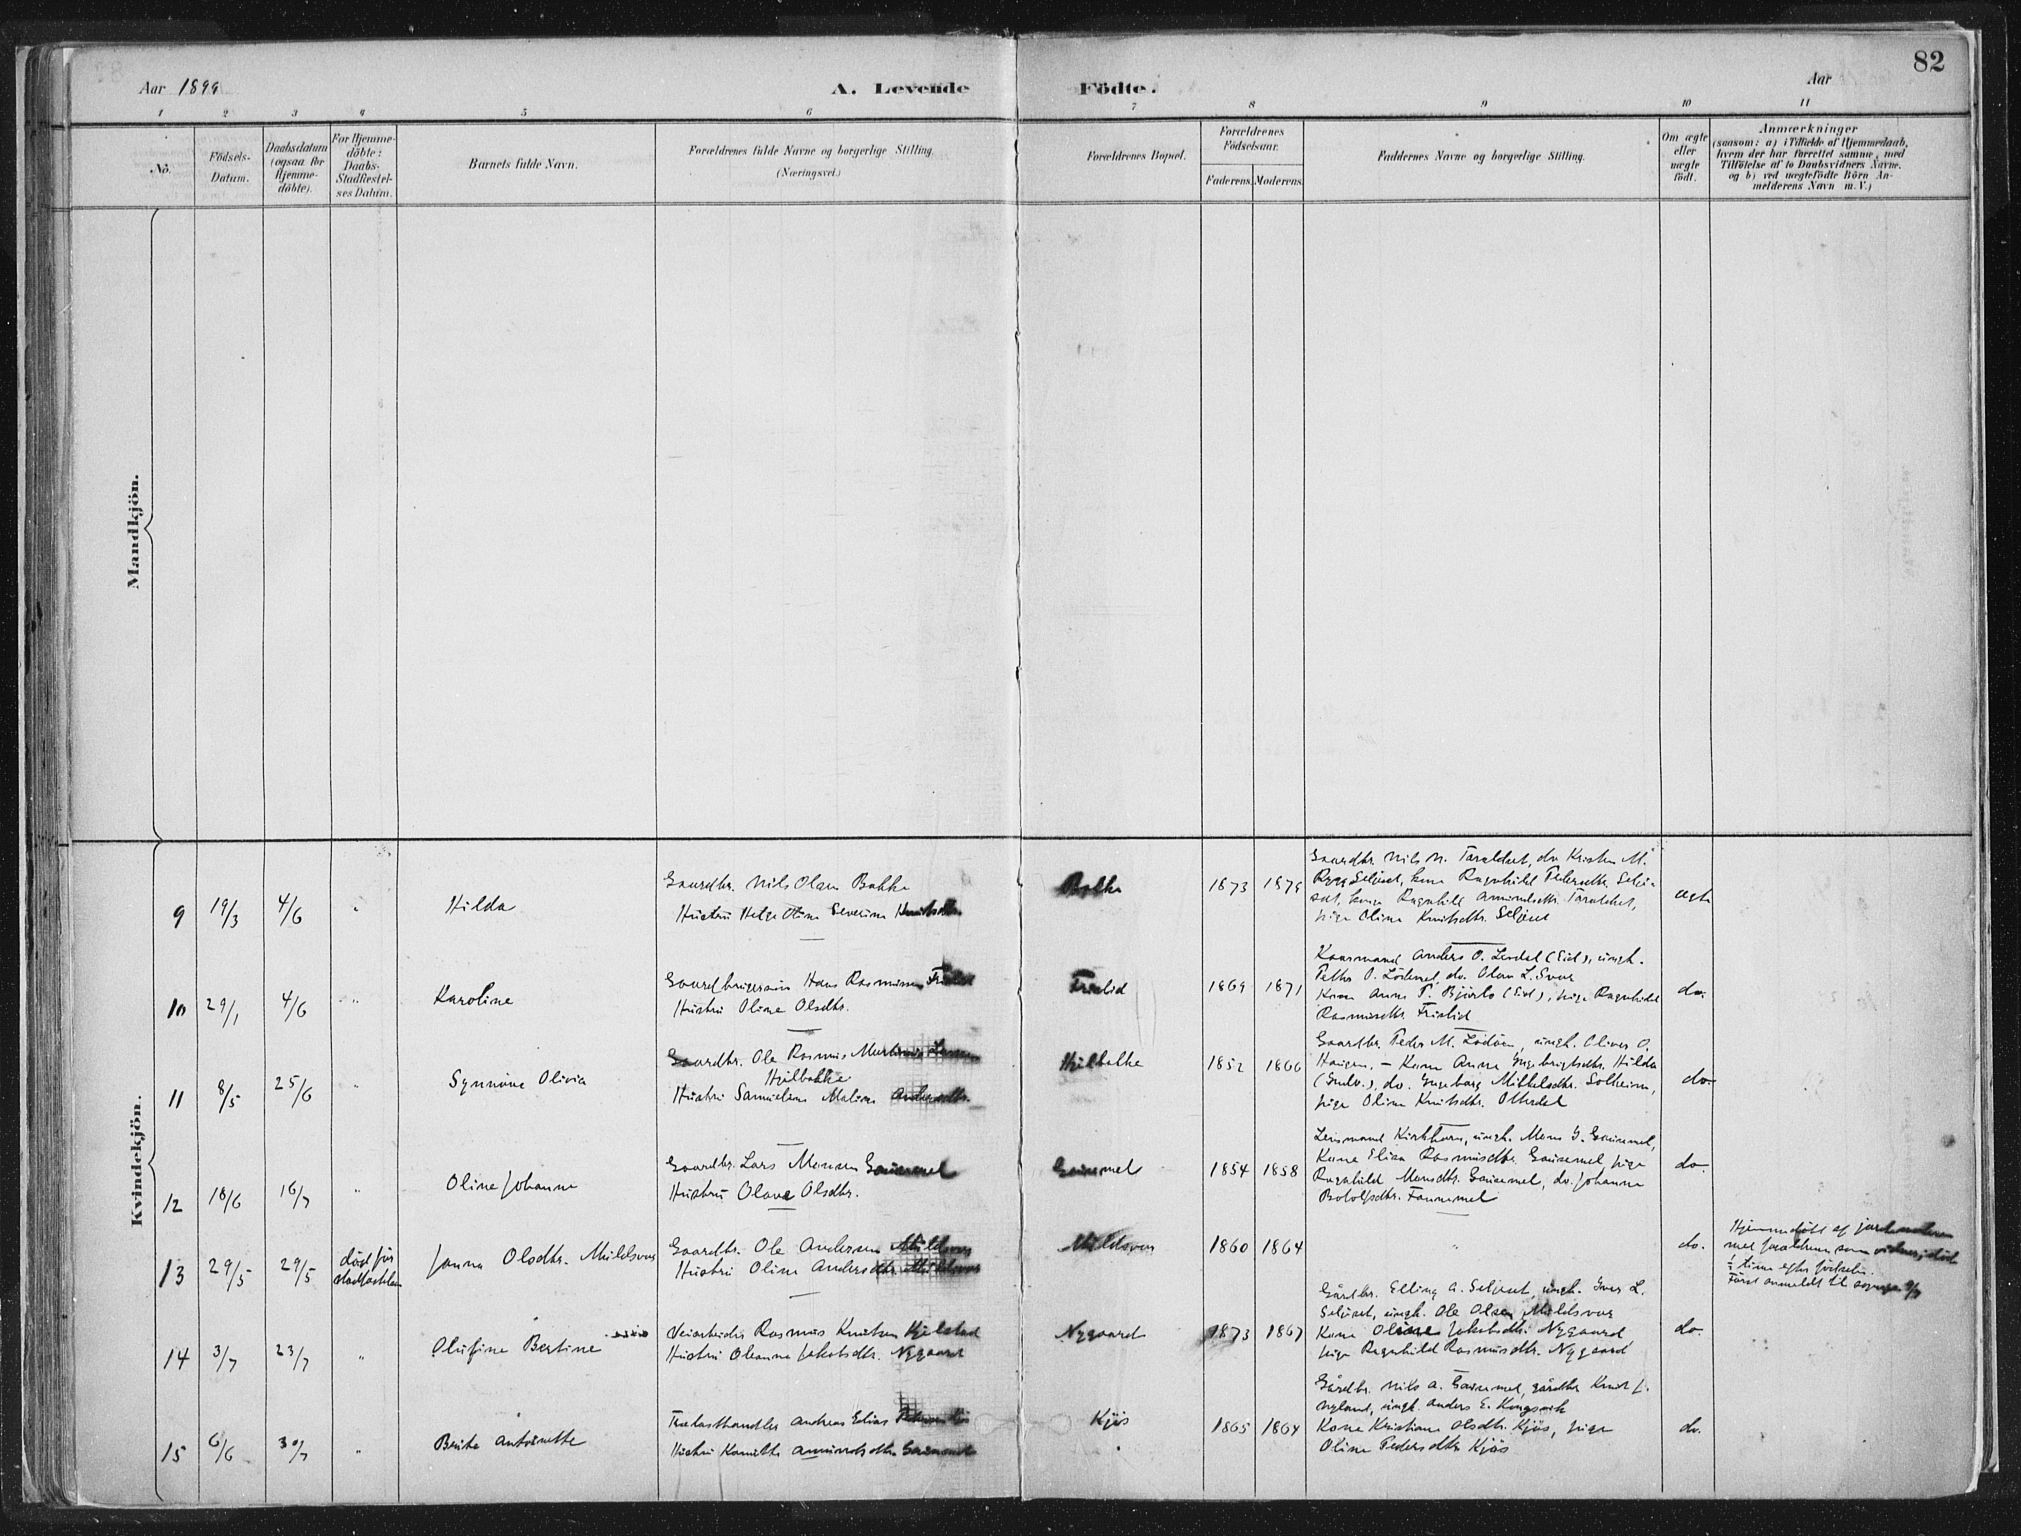 82
Aar 1899
A. Levende Födte.
Aar
1 2 3 4 5 6 7 8 9 10 11
No.
Födsels-Datum.
Daabsdatum (ogsaa for Hjemme-döbte).
For Hjemme-döbte: Daabs-Stadfæstel-ses Datum.
Barnets fulde Navn.
Forældrenes fulde Navne og borgerlige Stilling.
(Næringsvei.)
Forældrenes Bopæl.
Forældrenes Födselsaar.
Faderens. Moderens.
Faddernes Navne og borgerlige Stilling.
Om ægte eller uægte födt.
Anmærkninger
(saasom: a) i Tilfælde af Hjemmedaab, hvem der har forrettet samme, med Tilföielse af to Daabsvidners Navne. og b) ved uægtefödte Börn An-melderens Navn m. V.)
Mandkjön.
Kvindekjön.
9 19/3 4/6 " Hilda
Gaardbr. Nils Olsen Bakke
Hustru Helge Oline Severine Knutsdtr.
Bakke 1873 1875
Gaardbr. Nils N. Taraldset, do Kristen M.
Rygg Seljeset, kone Ragnhild Pedersdtr. Selje-
set, kone Ragnhild Amundsdtr. Taraldset,
pige Oline Knutsdtr. Seljeset
ægte
10 29/1 4/6 " Karoline
Gaardbrugersøn Hans Rasmussen Frislid
Hustru Oline Olsdtr.
Frislid 1869 1871
Kaarmand Anders O. Lendal (Eid), ungk.
Petter O. Lødemel, do. Olav L. Svor
Kone Anne P. Bjørlo (Eid), pige Ragnhild
Rasmusdtr. Frislid
do.
11 8/5 25/6 " Synnøve Olivia
Gaardbr. Ole Rasmus Martinus Larsen
Hjelbakke
Hustru Samueline Maline Andersdtr.
Hjelbakke 1852 1866
Gaardbr. Peder M. Lødøen, ungk. Oliver O.
Haugen, - Kone Anne Ingebrigtsdtr. Hilda
do. Ingeborg Mikkelsdtr. Solheim,
pige Oline Knutsdtr. Otterdal
do.
12 18/6 16/7 " Oline Johanne
Gaardbr. Lars Monsen Gausemel
Hustru Olave Olsdtr.
Gausemel 1854 1858
Lensmand Kirkhorn, ungk. Mons G. Gausemel,
Kone Elisa Rasmusdtr. Gausemel, pige
Ragnhild Monsdtr. Gausemel, do. Johanne
Botolfsdtr. Fannemel
do.
13 29/5 29/5 død før stadfæstelsen Janna Olsdtr. Muldsvor
Gaardbr. Ole Andersen Muldsvor
Hustru Oline Andersdtr. Muldsvor
Muldsvor 1860 1864 " do.
Hjemmedøbt af jordemoderen
med forældrene som vidner; død
1 time efter fødselen.
Først anmeldt til sognepr. 9/7
14 3/7 23/7 " Olufine Bertine
Veiarbeider Rasmus Knutsen Hjelstad
Hustru Oleanna Jakobsdtr. Nygaard
Nygaard 1873 1867
Gårdbr. Elling A. Seljeset, ungk. Iver L.
Seljeset, ungk. Ole Olsen Muldsvor
Kone Oline Jakobsdtr. Nygaard,
pige Ragnhild Rasmusdtr. Nygaard
do.
15 6/6 30/7 " Berthe Antoinette
Trælasthandler Andreas Elias Pedersen Kjøs
Hustru Kamilla Amundsdtr. Gausemel
Kjøs 1865 1864
Gårdbr. Nils A. Gausemel, gårdbr. Knut J.
Nyland, ungk. Anders E. Kongsvik
Kone Kristiane Olsdtr. Kjøs, pige
Oline Pedersdtr. Kjøs
do.